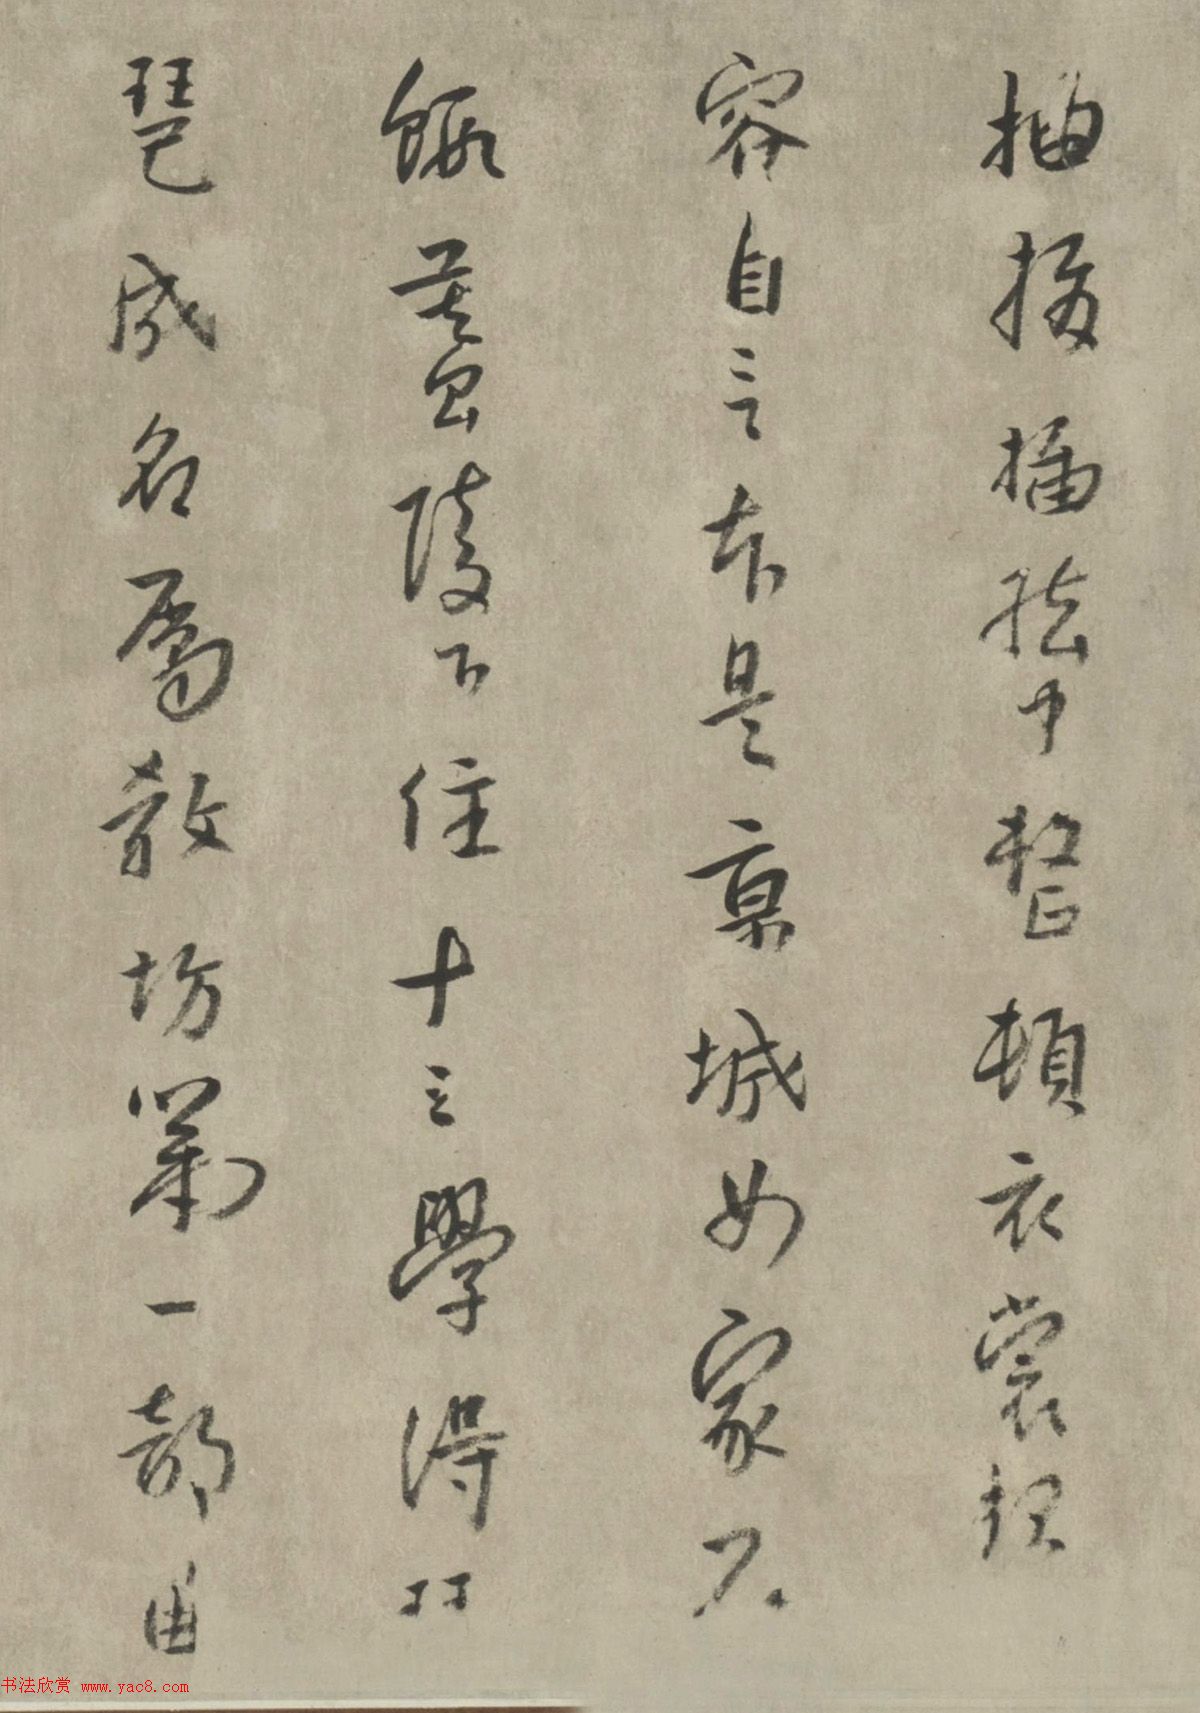 抽撥插絃中整頓衣裳起
容自言本是京城女家在
蝦蟇陵下住十三學得琵
琶成名屬教坊第一部曲
书法欣赏 www.yac8.com